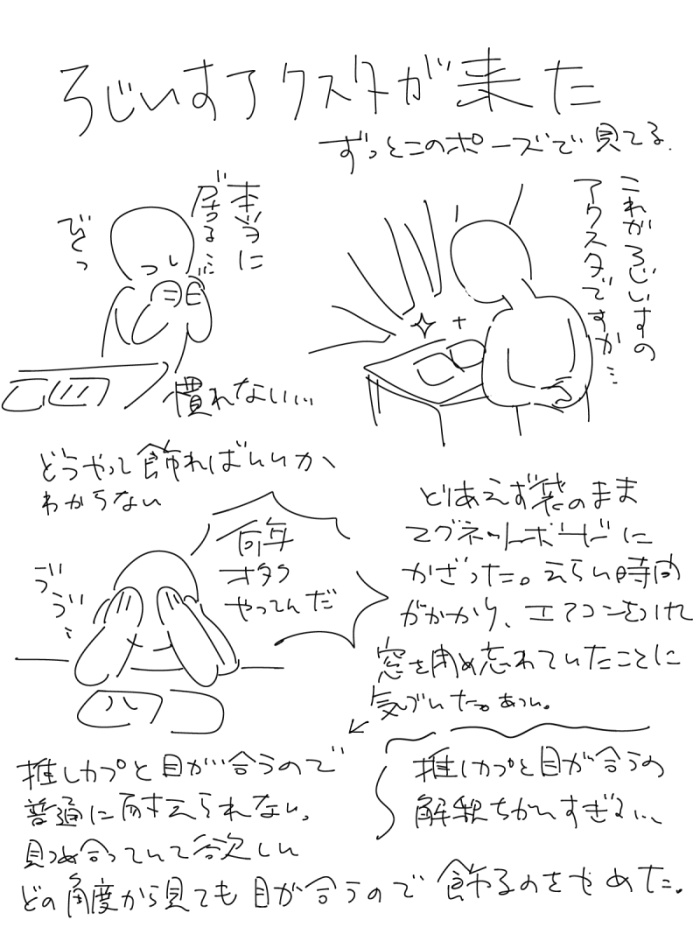 ろじいすアクスタが来た
ずっとこのポーズで見てる.
これがろじいすの
アクスタですか…
本当に
居る…
びくっ
慣れない…
どうやって飾ればいいか、
わからない
何年
オタク
やってんだ
ゔゔ…
とりあえず袋のまま
マグネットボードに
かざった。えらい時間
がかかり、エアコンをつけ
窓を閉め忘れていたことに
気づいた。あつい。
推しカプと目が合うので
普通に耐えられない。
見つめ合っていて欲しい
推しカプと目が合うの
解釈ちがいすぎる…
どの角度から見ても目が合うので飾るのをやめた。